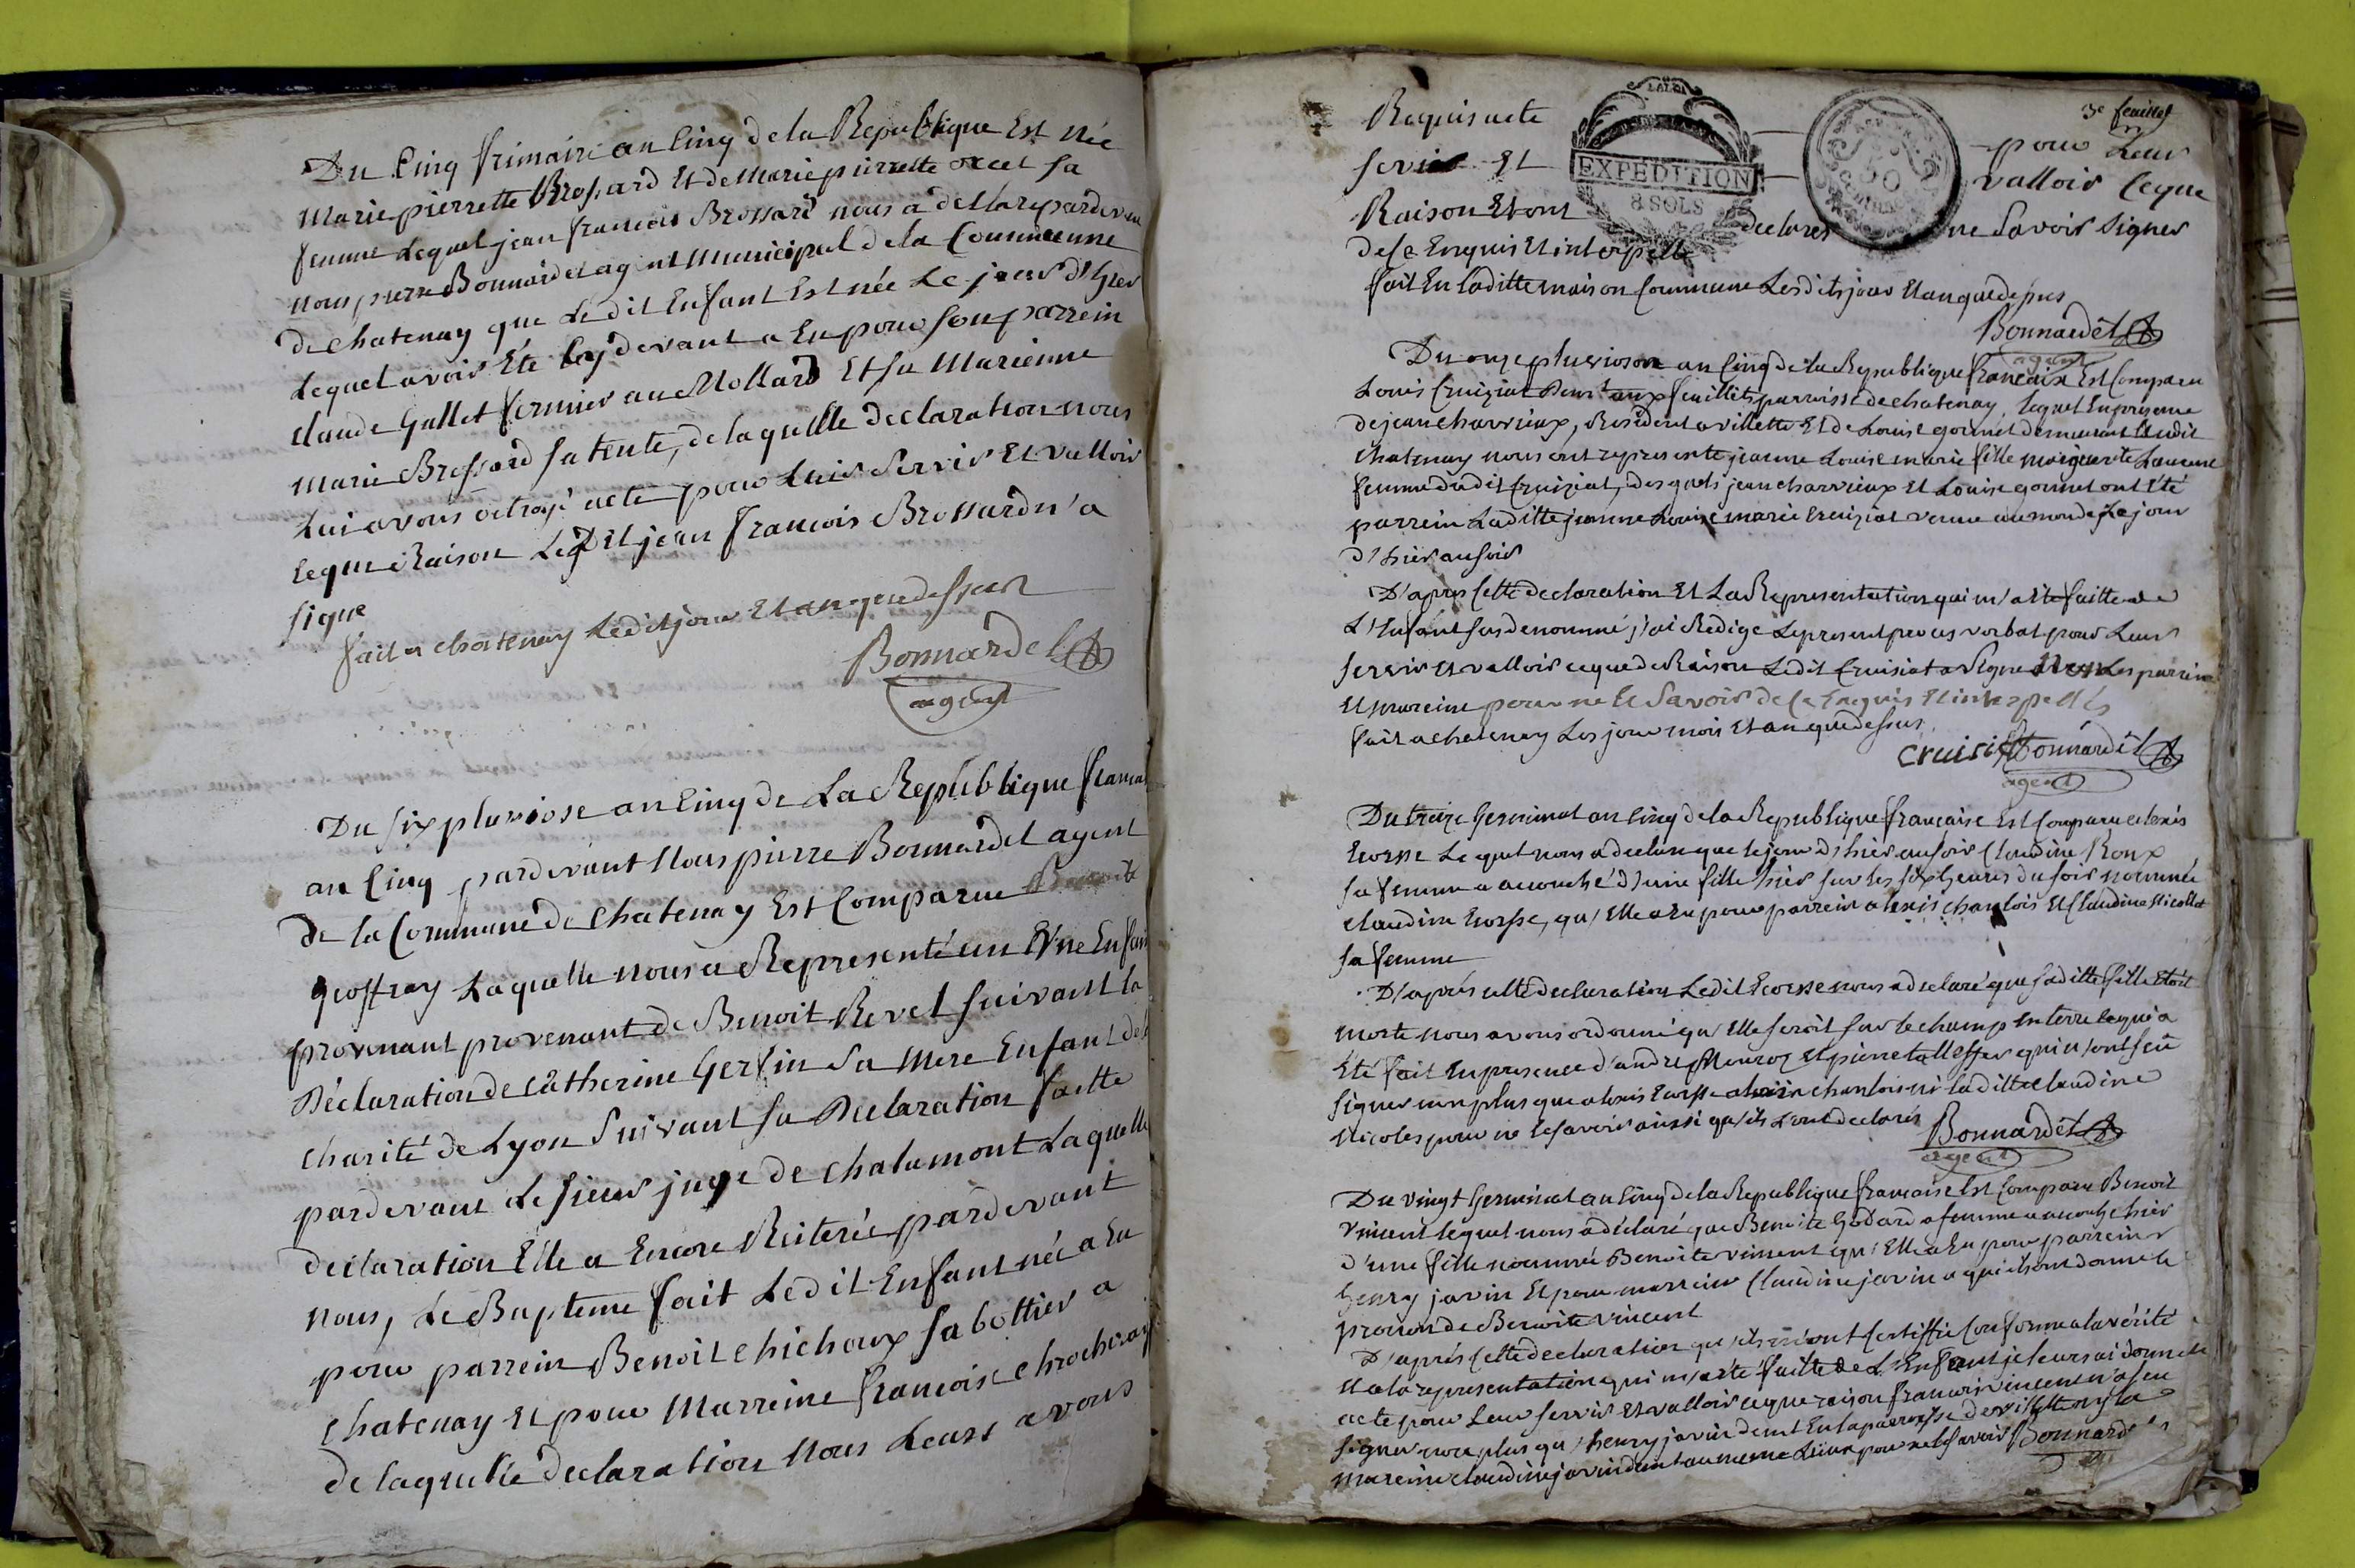 Du Cinq frimaire an Cinq de la Republique Est née
Marie pierrette Brossard Et de Marie pierrette ocel sa
femme Lequel jean francois Brossard nous a declaré pardevan
nous, pierre Bonnardel agent Municipal de la Commune
de Chatenay que Le dit Enfant Est née Le jour d'hier
Lequel avoir Été cy devant a Eu pour son parrein
Claude Gallet fermier au Mollard Et sa Marienne
Marie Brossard sa tente, de laquelle declaration nous
Lui avons octroyé acte pour Luis Servir Et valloir
ceque Raison Le dit jean francois Brossard n'a
signe
fait a chatenay Ledit jour Et an que dessus
Bonnardel
agent
Du six pluviose an Cinq de La Republique francai
an Cinq pardevant Nous pierre Bonnardel agent
de la Commune de Chatenay Est Comparue
Geoffray Laquelle nous a Representé un Enfan
provenant provenant de Benoit Revel suivant la
Déclaration de Catherine Gerfin Sa Mere Enfant de
charité de Lyon Suivant sa Declaration faitte
pardevant Le sieur juge de chalamont Laquelle
declaration Elle a Encore Reiterée pardevant
nous, Le Bapteme fait Ledit Enfant née a Eu
pour parrein Benoit chichoux sabottier a
chatenay Et pour Marreine francoise chrocheray
de laquelle declaration Nous Leurs avons
3e feuillet
Requis acte pour Leur
servir Et valloir ceque
EXPEDITION
8 SOLS
Raison Et ont declarés ne Savoir Signer
de ce Enquis Et interpellé
fait En laditte maison Commune Lesdits jour Et an que dessus
Bonnardel
agent
Du onze pluviose an Cinq de la Republique francaise Est Comparu
Louis Cruiziat Demt aux feuillets parroisse de chatenay, lequel En presence
de jean charvieux, Resident a villette Et de Louise gonnet demeurant audit
Chatenay nous ont representé jeanne Louise marie fille marguerite
femme dudit Cruiziat, desquels jean charvieux Et Louise gonnet ont Eté
parrein Laditte jeanne Louise marie Cruiziat venue au monde Le jour
d'hier au soir
D'apres cette declaration Et La Representation qui m'a eté faitte de
L'Enfant sus denommé j'ai Redigé Le present proces verbal pour Leur
servir Et valloir ceque de Raison Ledit Cruisiat a Signé Non Les parrein
Et mareine pour ne Le Savoir de ce Enquis Et interpellés
fait a chatenay Les jour mois Et an que dessus
Cruisiat Bonnardel
agent
Du treize Germinal an Cinq de la Republique francaise Est Comparu alexis
Ecosse Lequel nous a declaré que le jour d'hier au soir Claudine Roux
sa femme a accouché d'une fille hier sur les six heures du soir nommée
Claudine Ecosse, qu'Elle a Eu pour parrein alexis chanlois Et Claudine Nicollet
sa femme
D'aprés cette declaration Ledit Ecosse nous a declaré que sa ditte fille Etoit
morte nous avons ordonné qu'Elle seroit sur le champ Enterre ce qui a
Eté fait En presence d'andre Et pierre qui n'ont seû
signer non plus que alexis Ecosse alexis chanlois ni la ditte Claudine
Nicoles pour ne le savoir ainsi qu'ils L'ont declarés
Bonnardel
agent
Du vingt Germinal an Cinq de la Republique francaise Est Comparu Benoit
vincent lequel nous a declaré que Benoite Godard sa femme a accouché hier
d'une fille nommée Benoite vincent qu'Elle a Eu pour parrein
henry javin Et pour marreine Claudine javin a qui ils ont donné le
prenom de Benoite vincent
D'aprés cette declaration qu'ils m'ont Certiffié Conforme a la vérité
Et a la representation qui m'a eté faitte de L'Enfant je leurs ai donné
acte pour Leur servir Et valloir ceque raison francois vincent n'a seu
signer non plus qu'henry javin demt En la parroisse de villette ny la
mareine claudine javin demt au meme Lieux pour ne le savoir Bonnardel